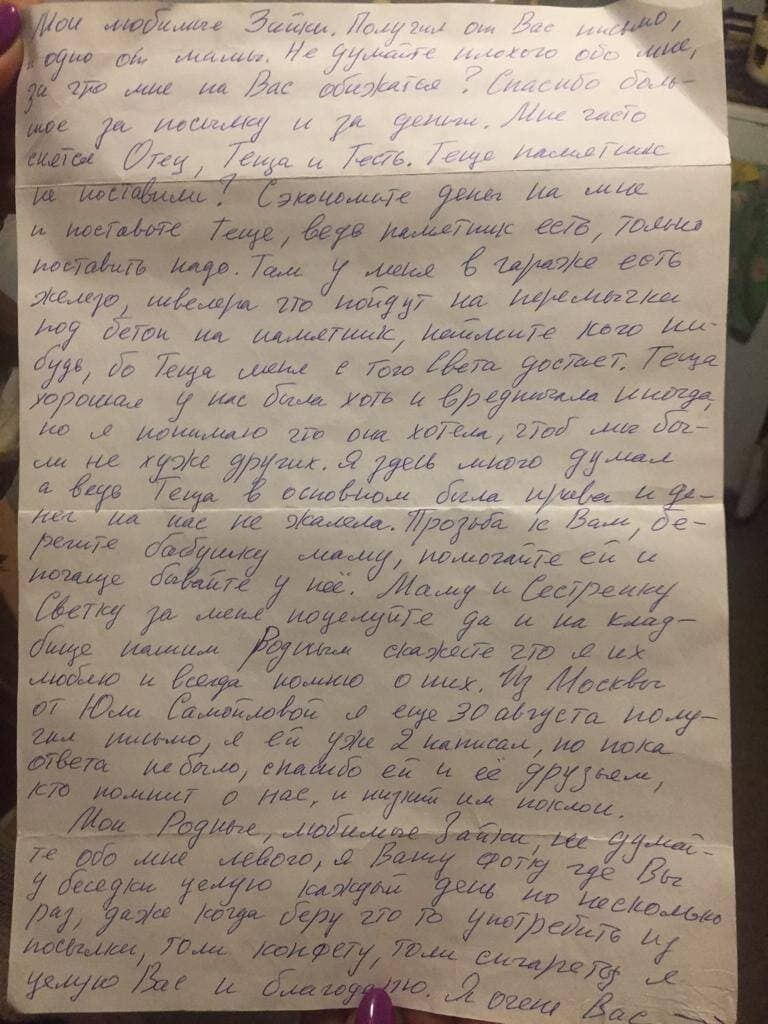 Мои любимые Зайки. Получил от Вас письмо,
и одно от мамы. Не думайте плохого обо мне,
за что мне на Вас обижатся? Спасибо боль-
шое за посылку и за деньги. Мне часто
снятся Отец, Теща и Тесть. Теще памятник
не поставили? Сэкономьте денег на мне
и поставьте теще, ведь памятник есть, только
поставить надо. Там у меня в гараже есть
железо, швелера что пойдут на перемычки
под бетон на памятник, наймите кого ни-
будь, бо Теща меня с того Света достает. Теща
хорошая у нас была хоть и вредничала иногда,
но я понимаю что она хотела, чтоб мы бы-
ли не хуже других. Я здесь много думал
а ведь Теща в основном была права и де-
нег на нас не жалела. Прозьба к Вам, бе-
регите бабушку маму, помогайте ей и
почаще бавайте у неё. Маму и Сестренку
Светку за меня поцелуйте да и на клад-
бище нашим Родным скажесте что я их
люблю и всегда помню о них. Из Москвы
от Юли Самойловой я еще 30 августа полу-
чил письмо, я ей уже 2 написал, но пока
ответа небыло, спасибо ей и её друзьям,
кто помнит о нас, и низкий им поклон.
Мои Родные, любимые Зайки, не думай-
те обо мне левого, я Вашу фотку где Вы
у беседки целую каждый день по несколько
раз, даже когда беру что то употребить из
посылки, толи конфету, толи сигарету я
целую Вас и благодарю. Я очень Вас